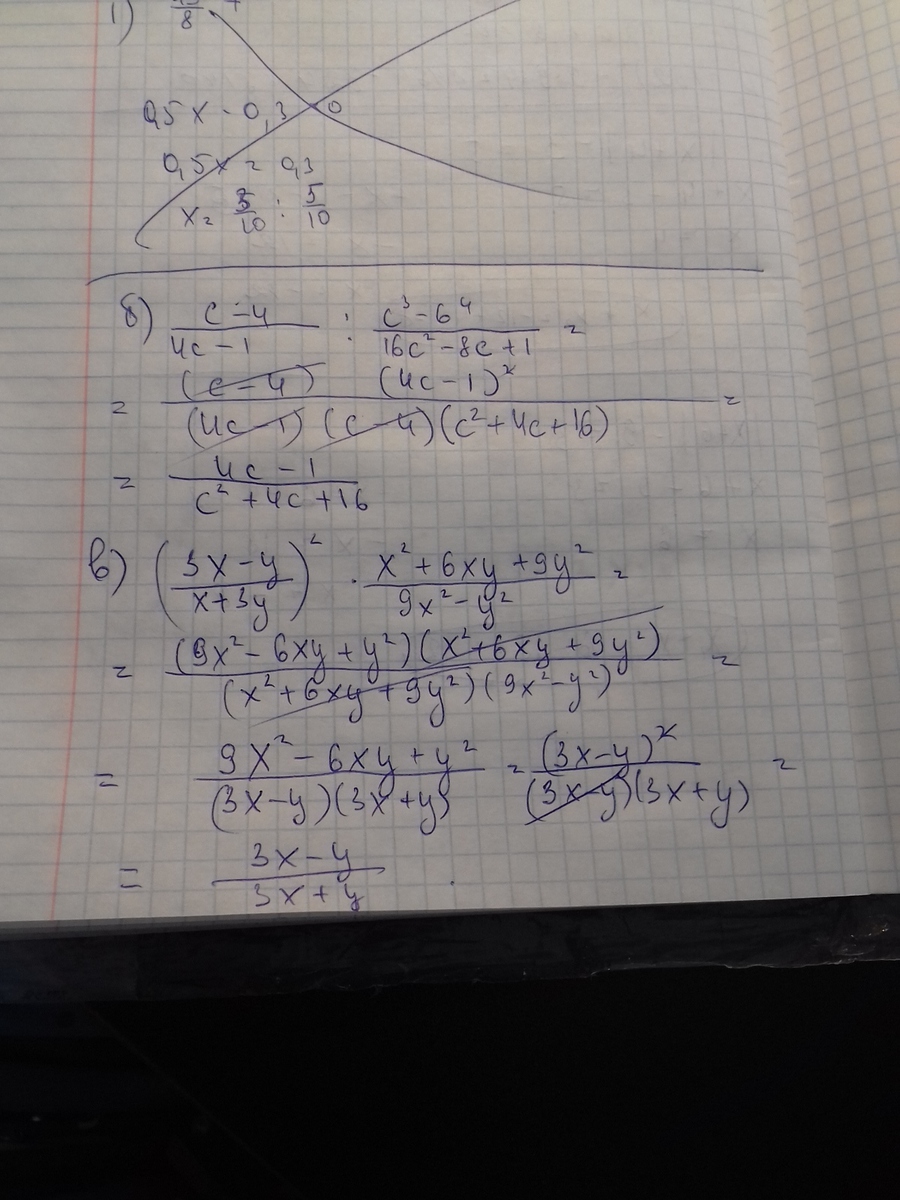 1)
8
0,5x - 0,3 = 0
0,5x = 0,3
x = 3/10 : 5/10
б) (c-4)/(4c-1) : (c³-64)/(16c²-8c+1) =
= ((c-4) (4c-1)²)/((4c-1)(c-4)(c²+4c+16)) =
= (4c-1)/(c²+4c+16)
в) ((3x-y)/(x+3y))² · (x²+6xy+9y²)/(9x²-y²) =
= ((9x²-6xy+y²)(x²+6xy+9y²))/((x²+6xy+9y²)(9x²-y²)) =
= (9x²-6xy+y²)/((3x-y)(3x+y)) = (3x-y)²/((3x-y)(3x+y)) =
= (3x-y)/(3x+y).